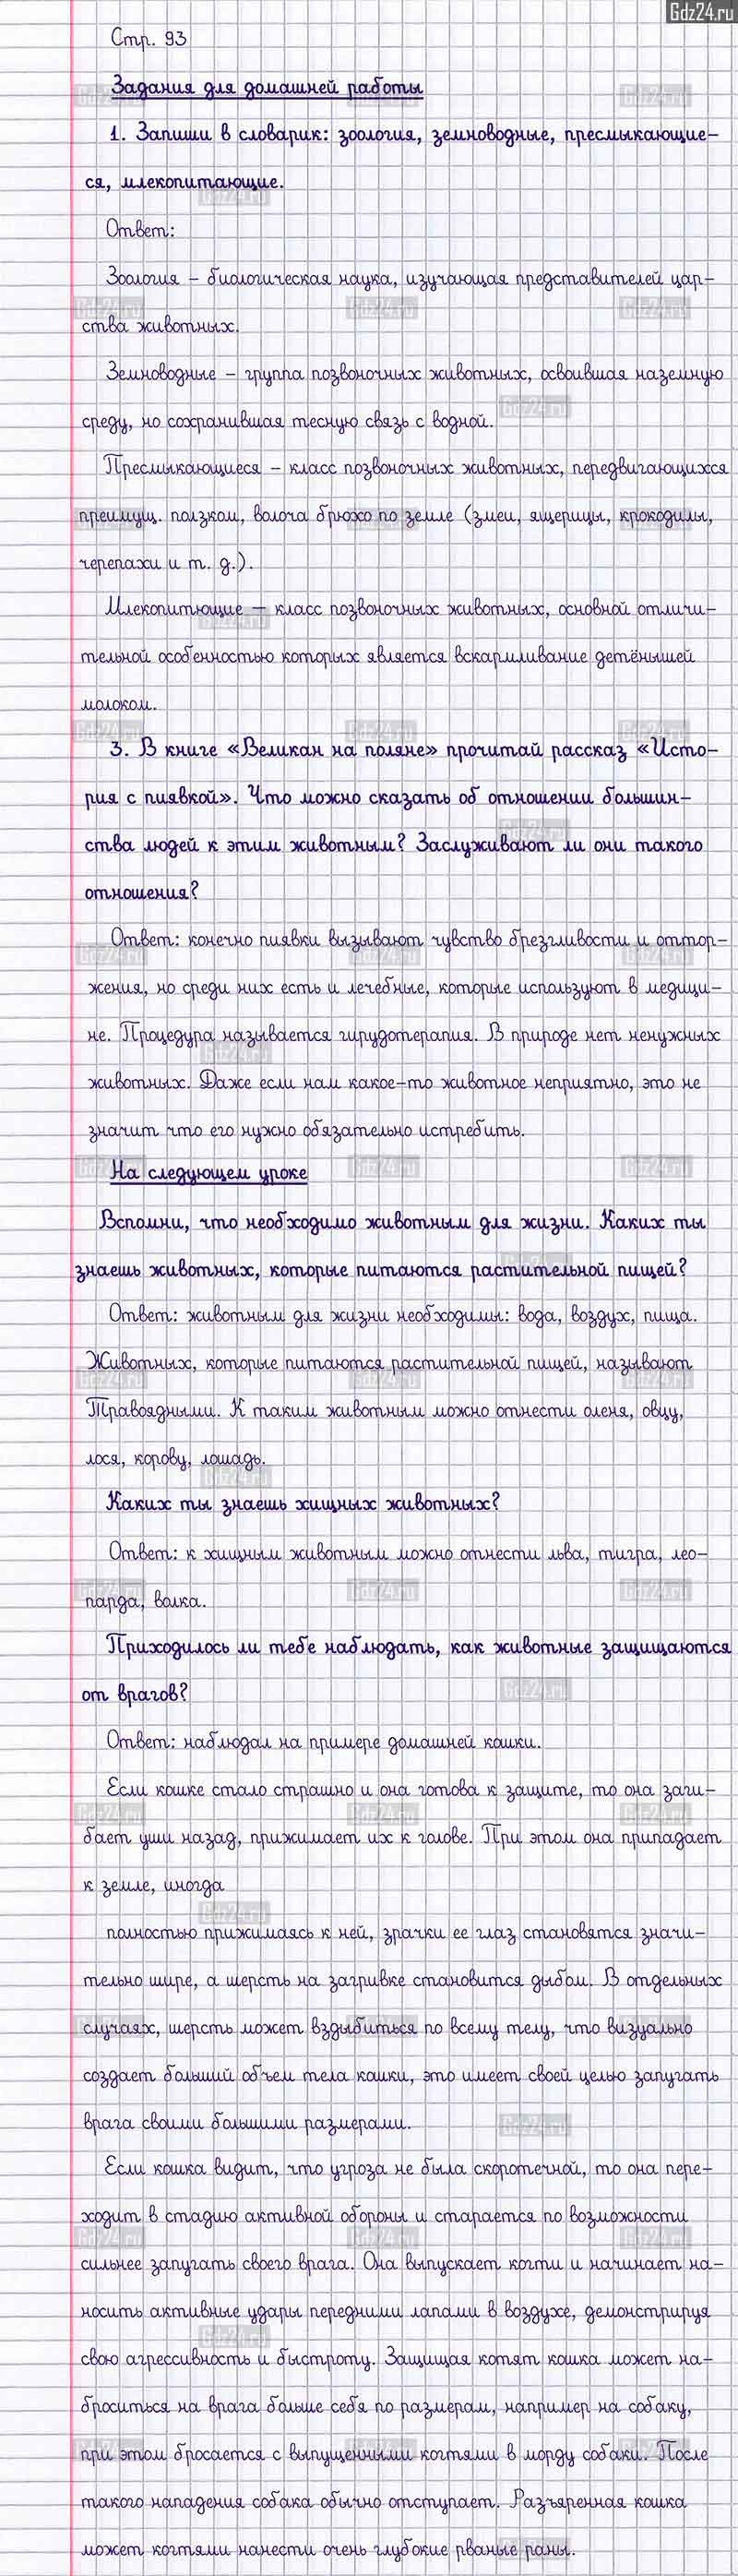 Gdz24.ru
Стр. 93
Задания для домашней работы
1. Запиши в словарик: зоология, земноводные, пресмыкающие-
ся, млекопитающие.
Ответ:
Зоология – биологическая наука, изучающая представителей цар-
ства животных.
Земноводные – группа позвоночных животных, освоившая наземную
среду, но сохранившая тесную связь с водной.
Пресмыкающиеся – класс позвоночных животных, передвигающихся
преимущ. ползком, волоча брюхо по земле (змеи, ящерицы, крокодилы,
черепахи и т. д.).
Млекопитющие – класс позвоночных животных, основной отличи-
тельной особенностью которых является вскармливание детёнышей
молоком.
3. В книге «Великан на поляне» прочитай рассказ «Исто-
рия с пиявкой». Что можно сказать об отношении большин-
ства людей к этим животным? Заслуживают ли они такого
отношения?
Ответ: конечно пиявки вызывают чувство брезгливости и оттор-
жения, но среди них есть и лечебные, которые используют в медици-
не. Процедура называется гирудотерапия. В природе нет ненужных
животных. Даже если нам какое-то животное неприятно, это не
значит что его нужно обязательно истребить.
На следующем уроке
Вспомни, что необходимо животным для жизни. Каких ты
знаешь животных, которые питаются растительной пищей?
Ответ: животным для жизни необходимы: вода, воздух, пища.
Животных, которые питаются растительной пищей, называют
Травоядными. К таким животным можно отнести оленя, овцу,
лося, корову, лошадь.
Каких ты знаешь хищных животных?
Ответ: к хищным животным можно отнести льва, тигра, лео-
парда, волка.
Приходилось ли тебе наблюдать, как животные защищаются
от врагов?
Ответ: наблюдал на примере домашней кошки.
Если кошке стало страшно и она готова к защите, то она заги-
бает уши назад, прижимает их к голове. При этом она припадает
к земле, иногда
полностью прижимаясь к ней, зрачки ее глаз становятся значи-
тельно шире, а шерсть на загривке становится дыбом. В отдельных
случаях, шерсть может вздыбиться по всему телу, что визуально
создает больший объем тела кошки, это имеет своей целью запугать
врага своими большими размерами.
Если кошка видит, что угроза не была скоротечной, то она пере-
ходит в стадию активной обороны и старается по возможности
сильнее запугать своего врага. Она выпускает когти и начинает на-
носить активные удары передними лапами в воздухе, демонстрируя
свою агрессивность и быстроту. Защищая котят кошка может на-
броситься на врага больше себя по размерам, например на собаку,
при этом бросается с выпущенными когтями в морду собаки. После
такого нападения собака обычно отступает. Разъяренная кошка
может когтями нанести очень глубокие рваные раны.